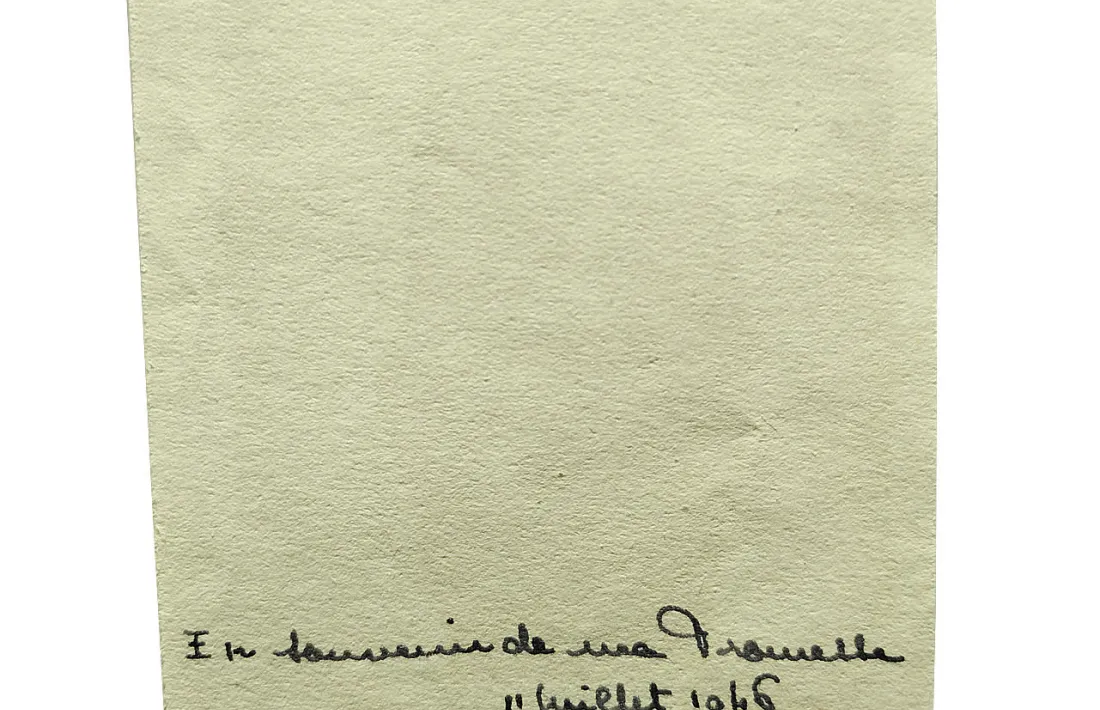 En souvenir de ma Promesse
11 Juillet 1946